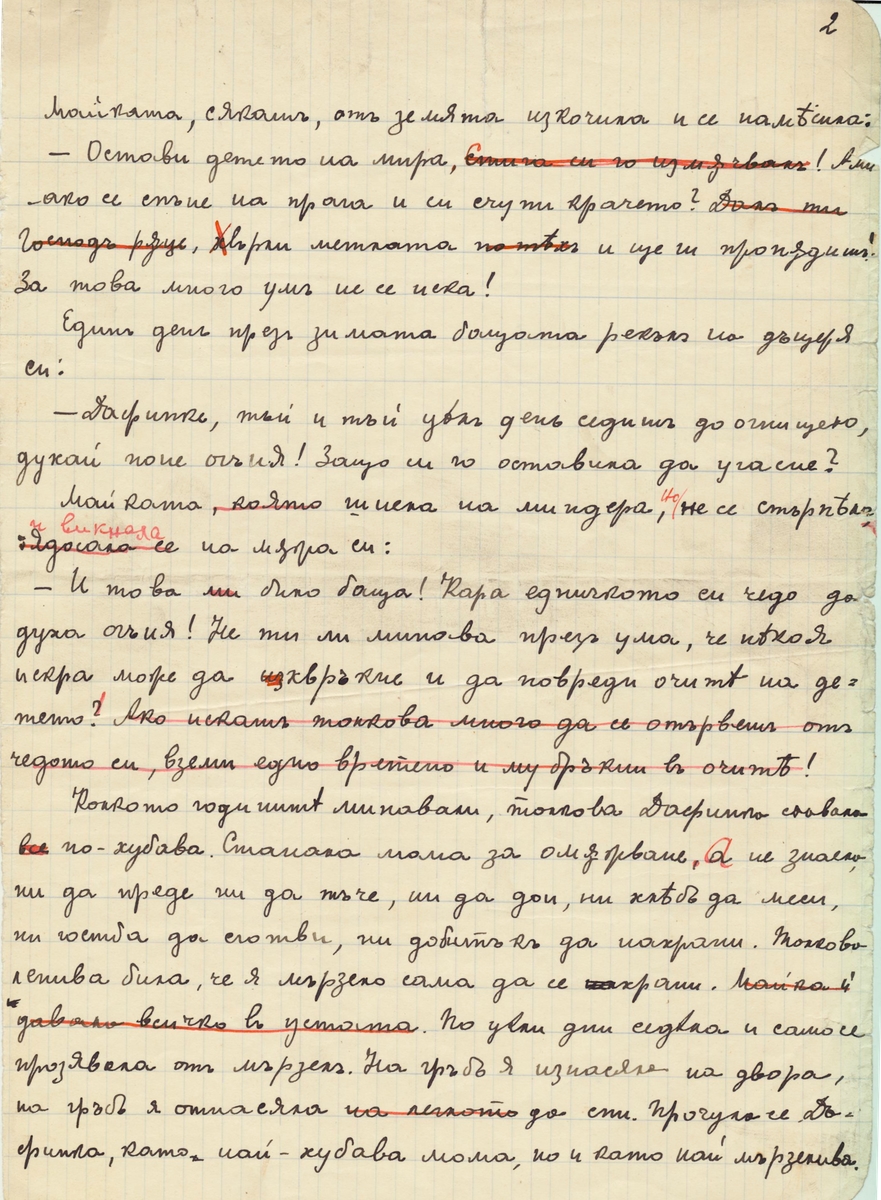 2
Майката, сякашъ, отъ земята изкочила и се намѣсила:
— Остави детето на мира, стига си го измѫчвалъ! Ами
ако се спъне на прага и си счупи крачето? Далъ ти
Господь рѫце, хвърли метлата по тѣхъ и ще ги пропѫдишъ!
За това много умъ не се иска!
Единъ день презъ зимата бащата рекълъ на дъщеря
си:
— Дафинке, тъй и тъй цѣлъ день седишъ до огнището,
духай поне огъня! Защо си го оставила да угасне?
Майката, която тиела на миндера, но не се стърпѣла,
и викнала
ядосала се на мѫжа си:
— И това ми било баща! Кара едничкото си чедо да
духа огъня! Не ти ли минова презъ ума, че нѣкоя
искра може да изхвръкне и да повреди очитѣ на де=
тето? Ако искашъ толкова много да се отървешъ отъ
чедото си, вземи едно вретено и му бръкни въ очитѣ!
Колкото годинитѣ минавали, толкова Дафинка ставала
все по-хубава. Станала мома за омѫжване, а не знаела,
ни да преде ни да тъче, ни да дои, ни хлѣбъ да меси,
ни гостба да сготви, ни добитъкъ да нахрани. Толкова
ленива била, че я мързело сама да се нахрани. Майка ѝ
давала всичко въ устата. По цѣли дни седѣла и само се
прозявала отъ мързелъ. На гръбъ я изнасяли на двора,
на гръбъ я отнасяла на леглото да спи. Прочула се Да-
финка, като най-хубава мома, но и като най мързелива.